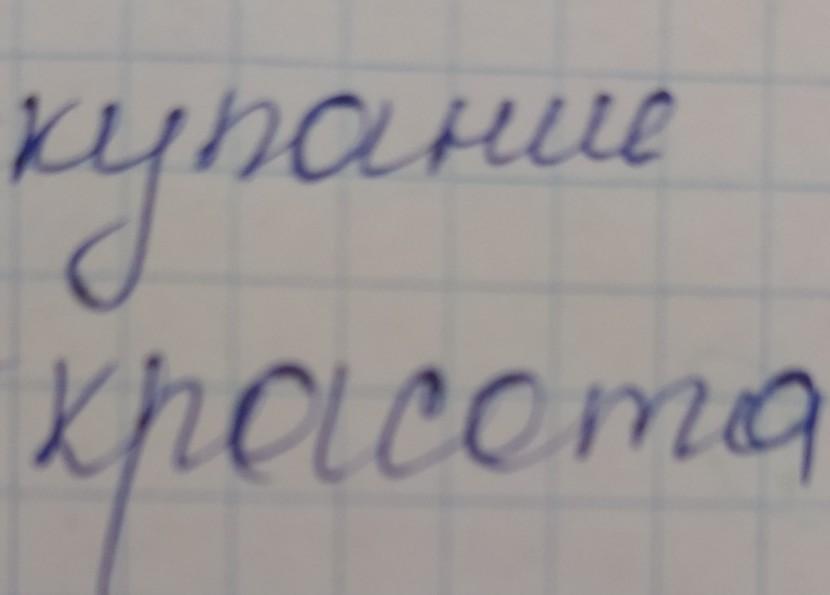 купание
красота